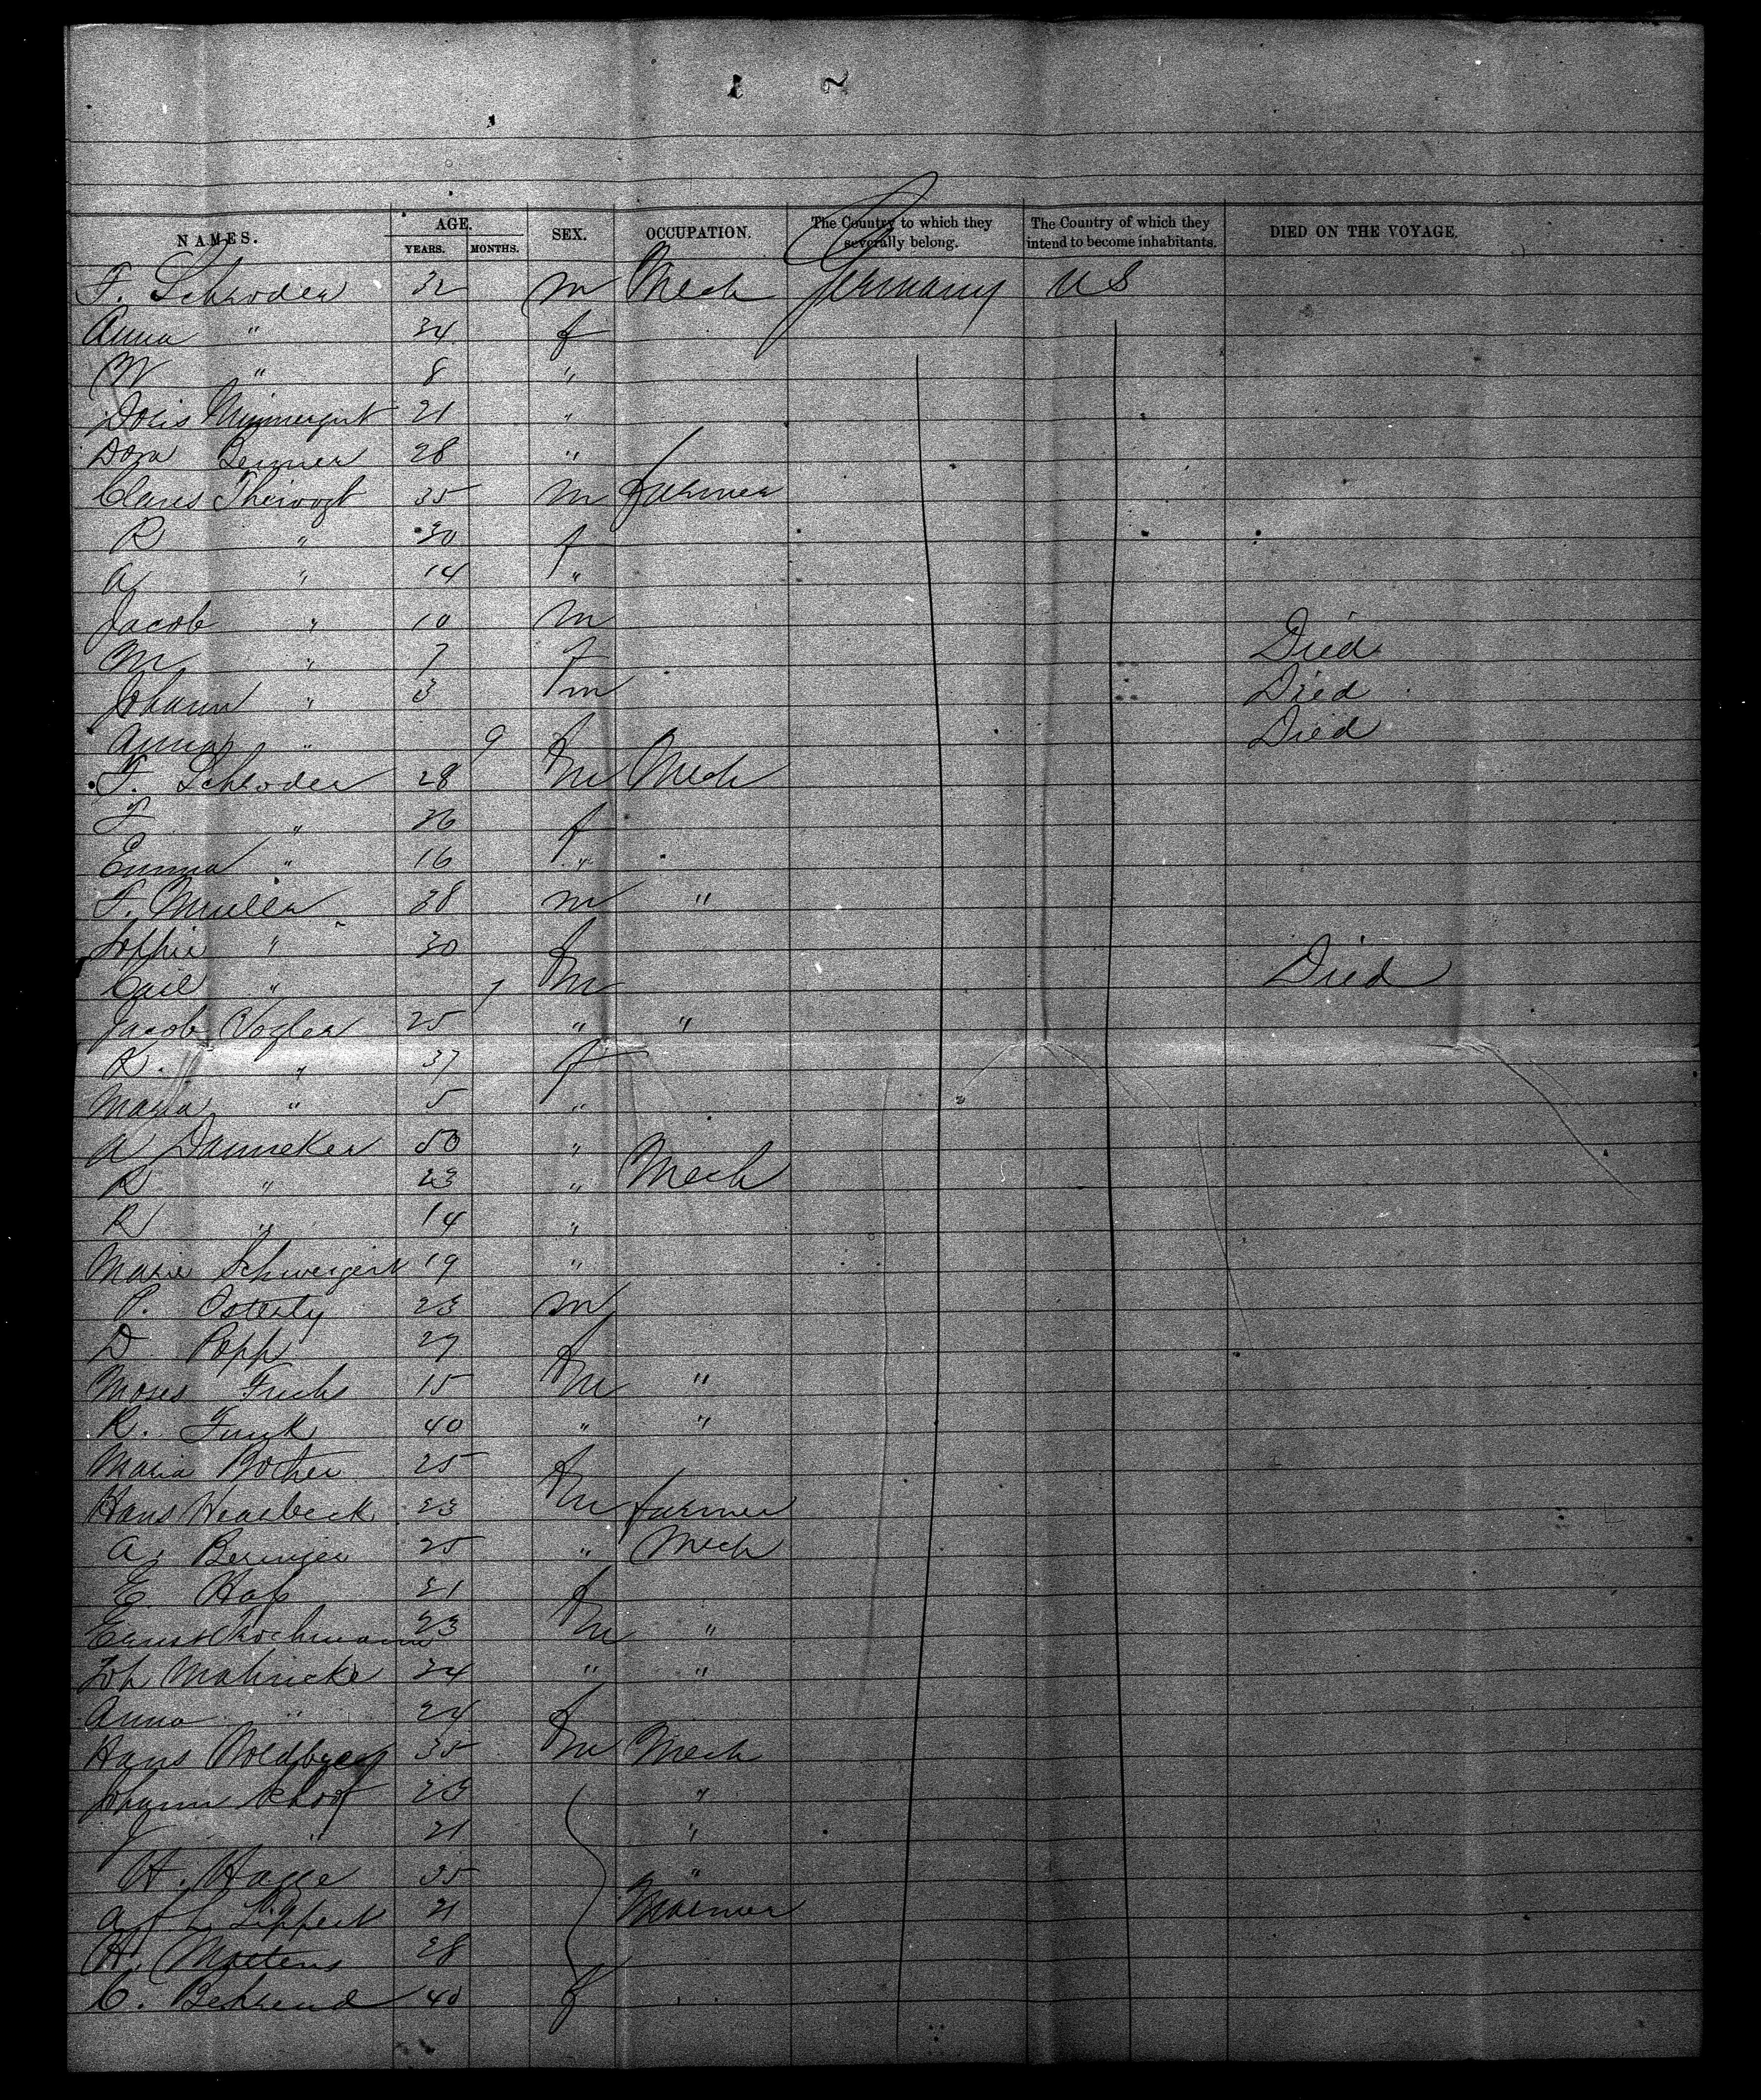 NAMES. AGE. SEX. OCCUPATION. The Country to which they severally belong. The Country of which they intend to become inhabitants. DIED ON THE VOYAGE.
YEARS. MONTHS.
F. Schroder 32 m Mech Germany US
Anna " 34 f
W " 8 "
Doris 21 "
Dora 28 "
Claus 35 m farmer
R " 30 f
A " 14 "
Jacob " 10 m
M " 7 f Died
Johann " 3 m Died
Anna " 9 f Died
F. Schroder 28 m Mech
F " 26 f
Emma " 16 "
F. Muller 38 m "
Sophie " 30 f
Carl " 7 m Died
Jacob Vogler 25 " "
K. " 37 f
Maria " 5 "
A Danneker 50 "
R " 23 " Mech
R " 14 "
Marie Schweigert 19 "
P. Osterly 23 m
D Popp 27 f
Moses Fuchs 15 m "
R. Funk 40 " "
Maria Bother 25 f
Hans 23 m farmer
A. Beringer 25 " Mech
E. Hass 21 f
Ernst 23 m "
Joh Mahncke 34 " "
Anna " 24 f
Hans 35 m Mech
Johann Schoof 23 "
J " 21 "
H. Hagge 35 "
A. Lippert 21
H. Martens 28
C. Behrend 40 f